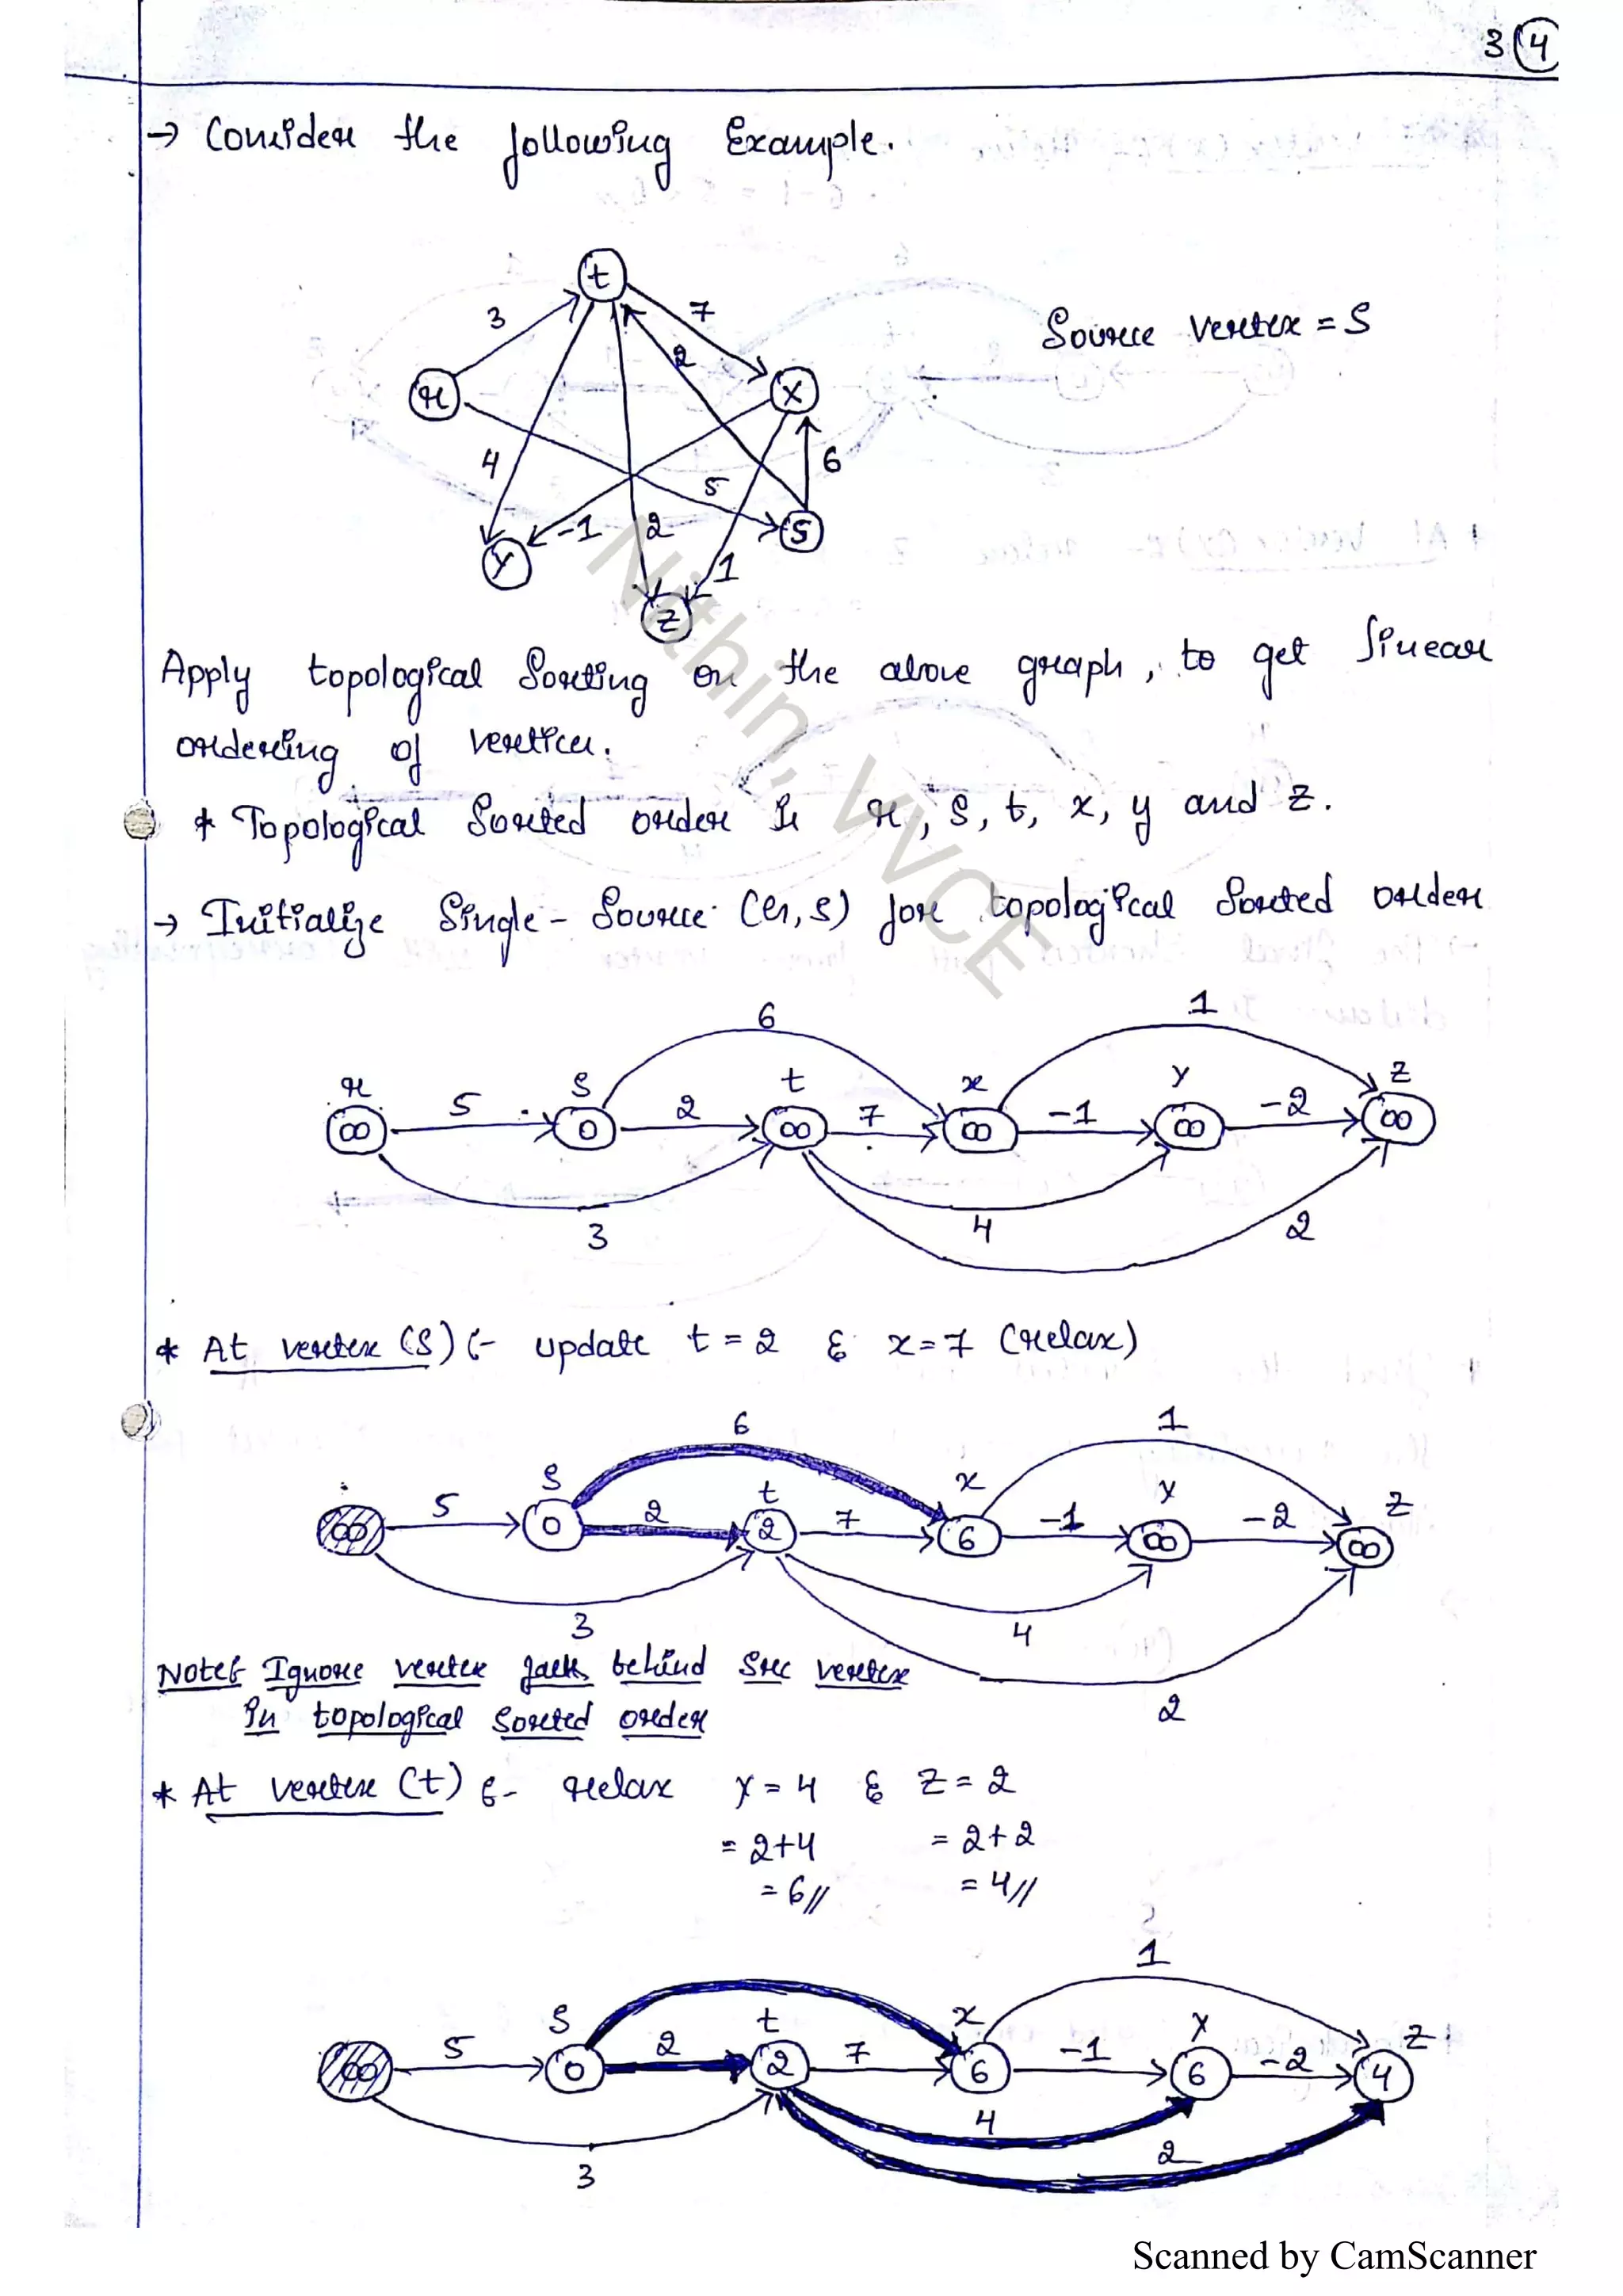 3 4
→ Consider the following Example.
t
3
7
2
r
x
Source vertex = S
4
6
5
-1
2
S
y
1
z
Apply topological Sorting on the above graph, to get linear
ordering of vertices.
* Topological Sorted order is r, s, t, x, y and z.
→ Initialize Single - Source (G, S) for topological Sorted order
6
1
r S t x y z
∞ 5 0 2 ∞ 7 ∞ -1 ∞ -2 ∞
3
4
2
* At vertex (S) :- update t = 2 & x = 7 (relax)
6
1
S t x y z
∞ 5 0 2 2 7 6 -1 ∞ -2 ∞
3
4
2
Note: Ignore vertex falls behind src vertex
in topological sorted order
* At vertex (t) :- relax y = 4 & z = 2
= 2+4 = 2+2
= 6// = 4//
1
S t x y z
∞ 5 0 2 2 7 6 -1 6 -2 4
4
2
3
Nithin, VVCE
Scanned by CamScanner